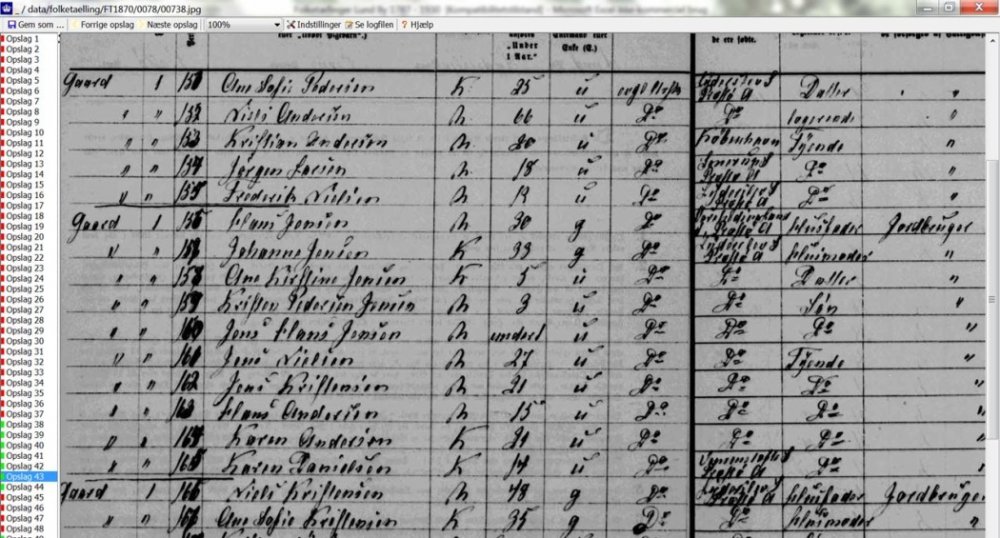 _ / data/folketaelling/FT1870/0078/00738.jpg
Gem som ... Forrige opslag Næste opslag 100% Indstillinger Se logfilen ? Hjælp
Opslag 1
Opslag 2
Opslag 3
Opslag 4
Opslag 5
Opslag 6
Opslag 7
Opslag 8
Opslag 9
Opslag 10
Opslag 11
Opslag 12
Opslag 13
Opslag 14
Opslag 15
Opslag 16
Opslag 17
Opslag 18
Opslag 19
Opslag 20
Opslag 21
Opslag 22
Opslag 23
Opslag 24
Opslag 25
Opslag 26
Opslag 27
Opslag 28
Opslag 29
Opslag 30
Opslag 31
Opslag 32
Opslag 33
Opslag 34
Opslag 35
Opslag 36
Opslag 37
Opslag 38
Opslag 39
Opslag 40
Opslag 41
Opslag 42
Opslag 43
Opslag 44
Opslag 45
Opslag 46
Opslag 47
Opslag 48
„Under 1 Aar." Enke (E.) de ere fødte.
Gaard 1 Ane Sofie Pedersen K 25 u Præstø A Datter "
" " 152 Niels Andersen M 66 u Do logerende "
" " 153 Kristian Andersen M 20 u Do København Tyende "
" " 154 Jørgen Larsen M 18 u Do Præstø A Do "
" " 155 Frederik Nielsen M 13 u Do Do "
Gaard 1 156 Hans Jensen M 30 g Do Præstø A Husfader Jordbruger
" " 157 Johanne Jensen K 33 g Do Præstø A Husmoder "
" " 158 Ane Kirstine Jensen K 5 u Do Do Datter "
" " 159 Kristen Pedersen Jensen M 3 u Do Do Søn "
" " 160 Jens Hans Jensen M under 1 u Do Do Do "
" " 161 Jens Nielsen M 27 u Do Do Tyende "
" " 162 Jens Kristensen M 21 u Do Do Do "
" " 163 Hans Andersen M 15 u Do Do Do "
" " 164 Karen Andersen K 21 u Do Do Do "
" " 165 Karen Danielsen K 14 u Do Præstø A Do "
Gaard 1 166 Niels Kristensen M 48 g Do Præstø A Husfader Jordbruger
" " 167 Ane Sofie Kristensen K 35 g Do Do Husmoder "